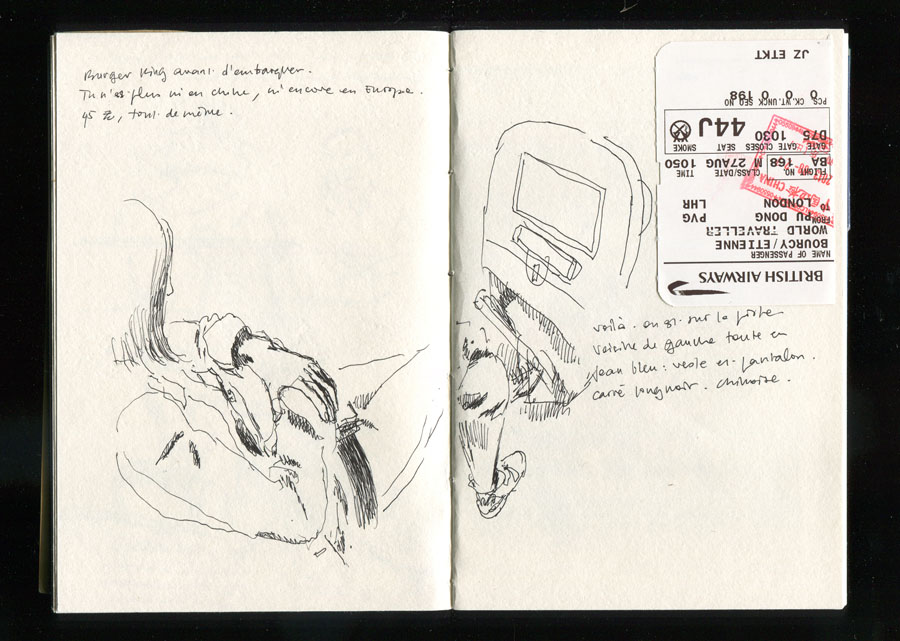 Burger King avant d'embarquer.
Tu n'es plus ni en chine, ni encore en Europe.
45 元, tout de même.
voilà. on est sur la piste
voisine de gauche toute en
jean bleu : veste et pantalon.
carré long noir. chinoise.
BRITISH AIRWAYS
NAME OF PASSENGER
BOURCY/ETIENNE
WORLD TRAVELLER
FROM PU DONG PVG
TO LONDON LHR
FLIGHT NO. CLASS/DATE TIME
BA 168 M 27AUG 1050
GATE GATE CLOSES SEAT SMOKE
D75 1030 44J
PCS. CK. WT. UNCK. WT. SEQ NO
0 0 0 198
JZ ETKT
CHINA